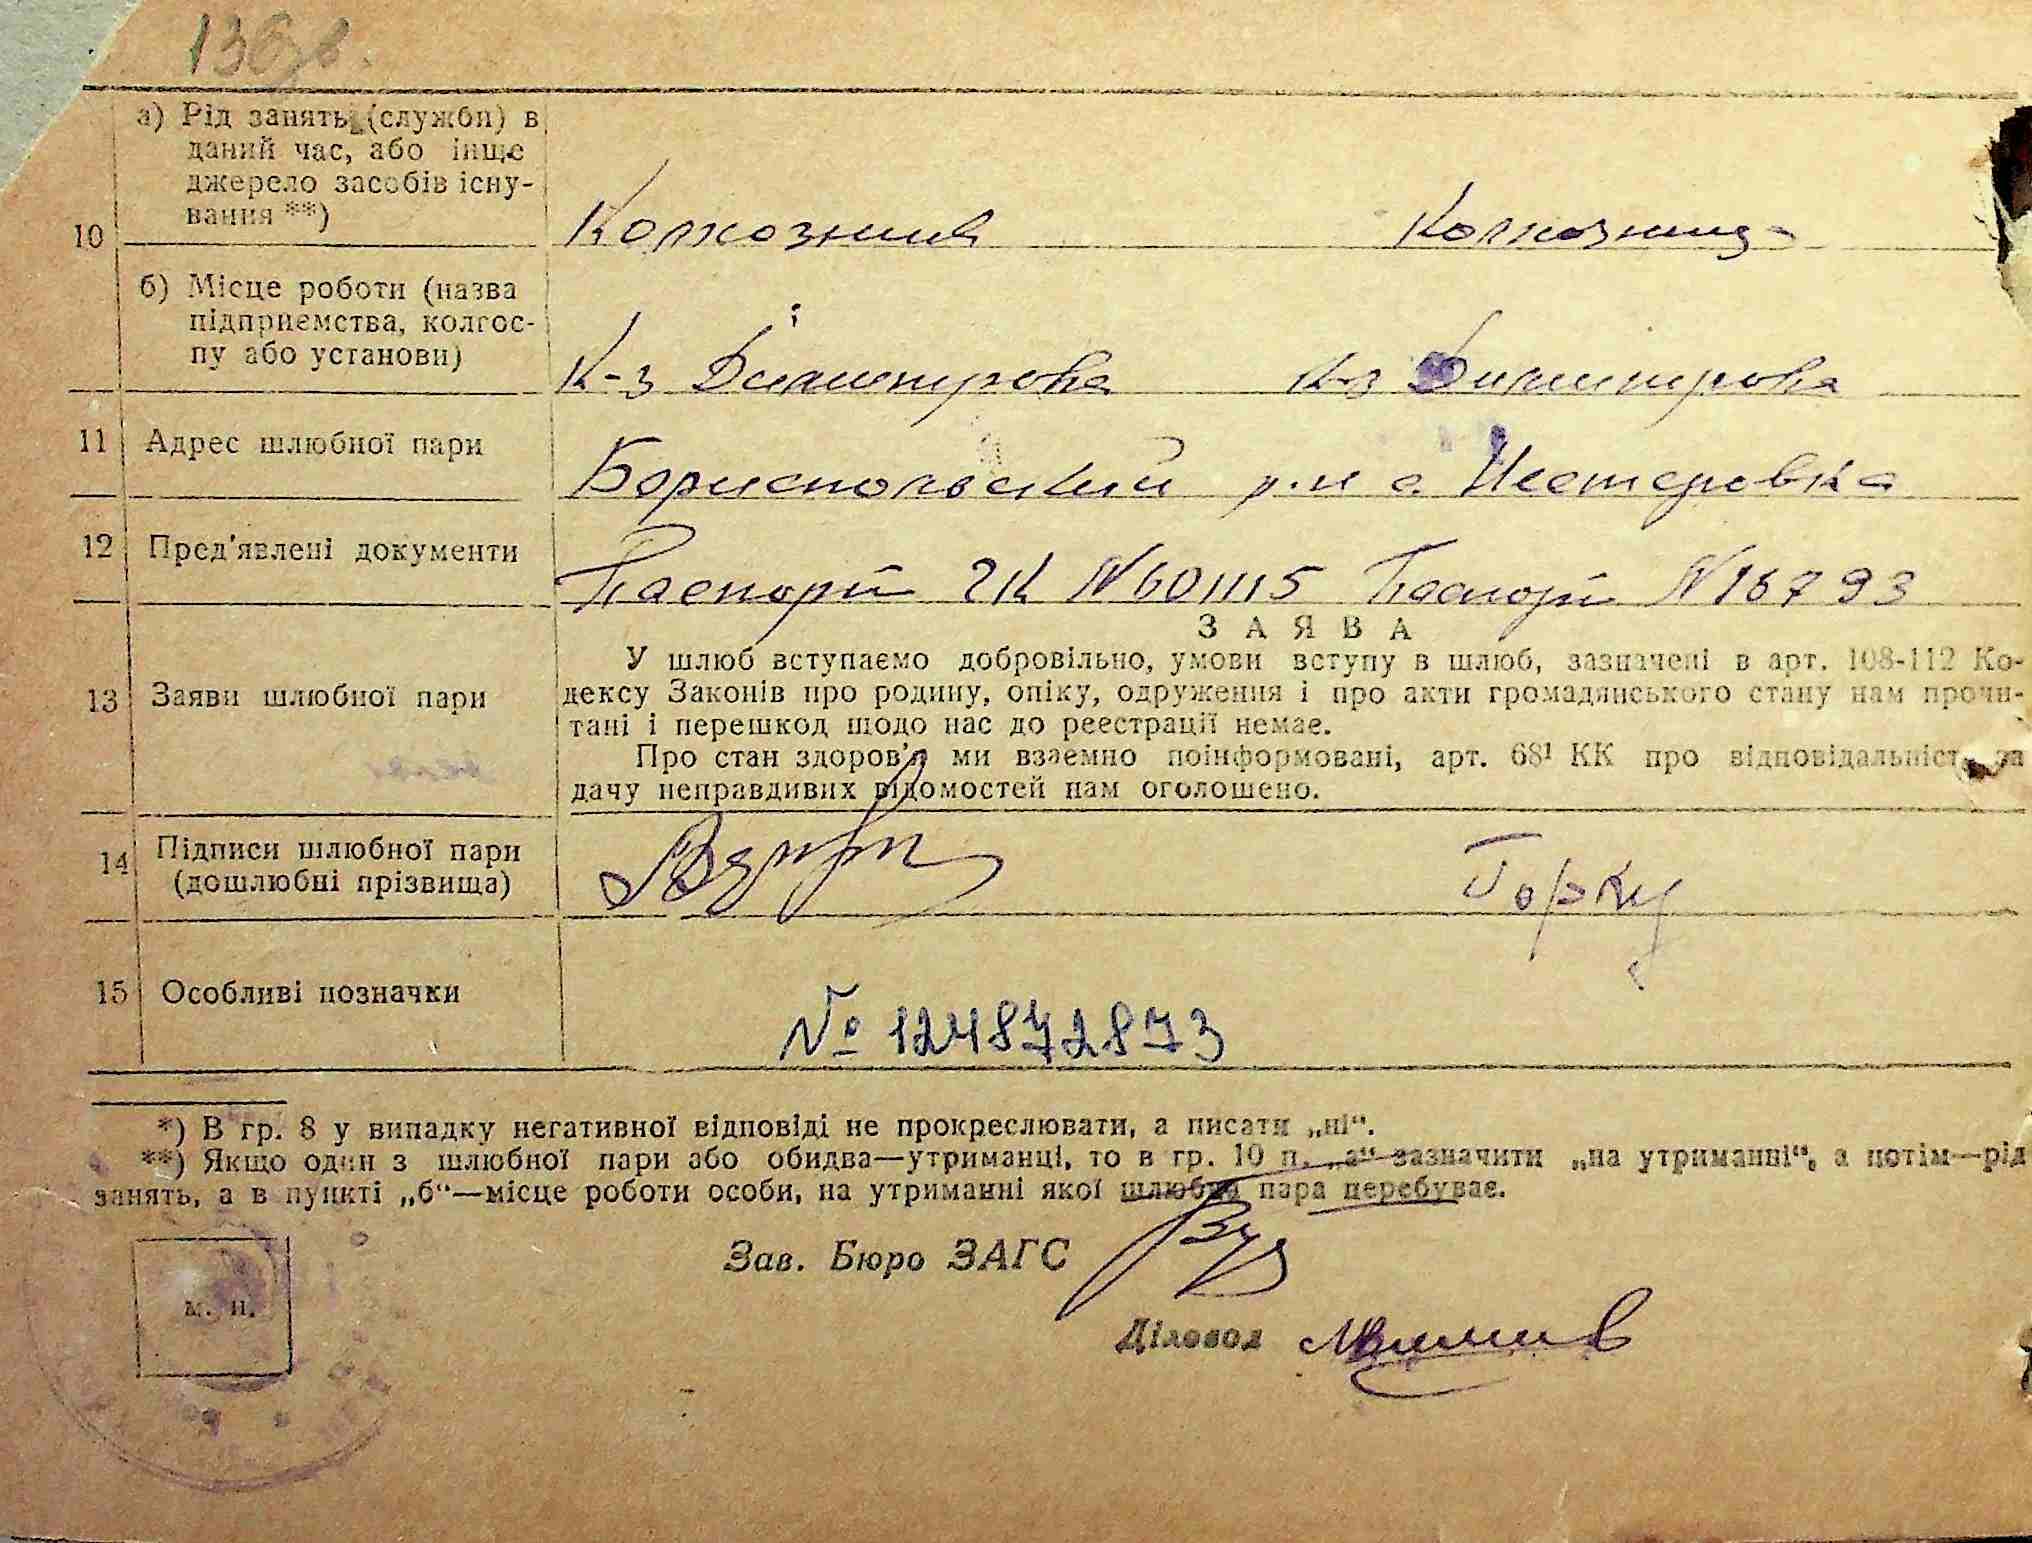 10
а) Рід занять (служби) в
даний час, або інще
джерело засобів існу-
вання **)
Колхозник Колхозница
б) Місце роботи (назва
підприємства, колгос-
пу або установи)
К-з Діамитрова К-з Димитрова
11 Адрес шлюбної пари Бориспольский р-н с. Нестеровка
12 Пред'явлені документи Паспорт ЧК N 601115 Паспорт N 16793
ЗАЯВА
13 Заяви шлюбної пари
У шлюб вступаємо добровільно, умови вступу в шлюб, зазначені в арт. 108-112 Ко-
дексу Законів про родину, опіку, одруження і про акти громадянського стану нам прочи-
тані і перешкод щодо нас до реєстрації немає.
Про стан здоров'я ми взаємно поінформовані, арт. 68¹ КК про відповідальність за
дачу неправдивих відомостей нам оголошено.
14 Підписи шлюбної пари
(дошлюбні прізвища)
15 Особливі позначки
№ 124872873
*) В гр. 8 у випадку негативної відповіді не прокреслювати, а писати „ні“.
**) Якщо один з шлюбної пари або обидва—утриманці, то в гр. 10 п. „а“ зазначити „на утриманні“, а потім—рід
занять, а в пункті „б“—місце роботи особи, на утриманні якої шлюбна пара перебуває.
Зав. Бюро ЗАГС
м. п.
Діловод